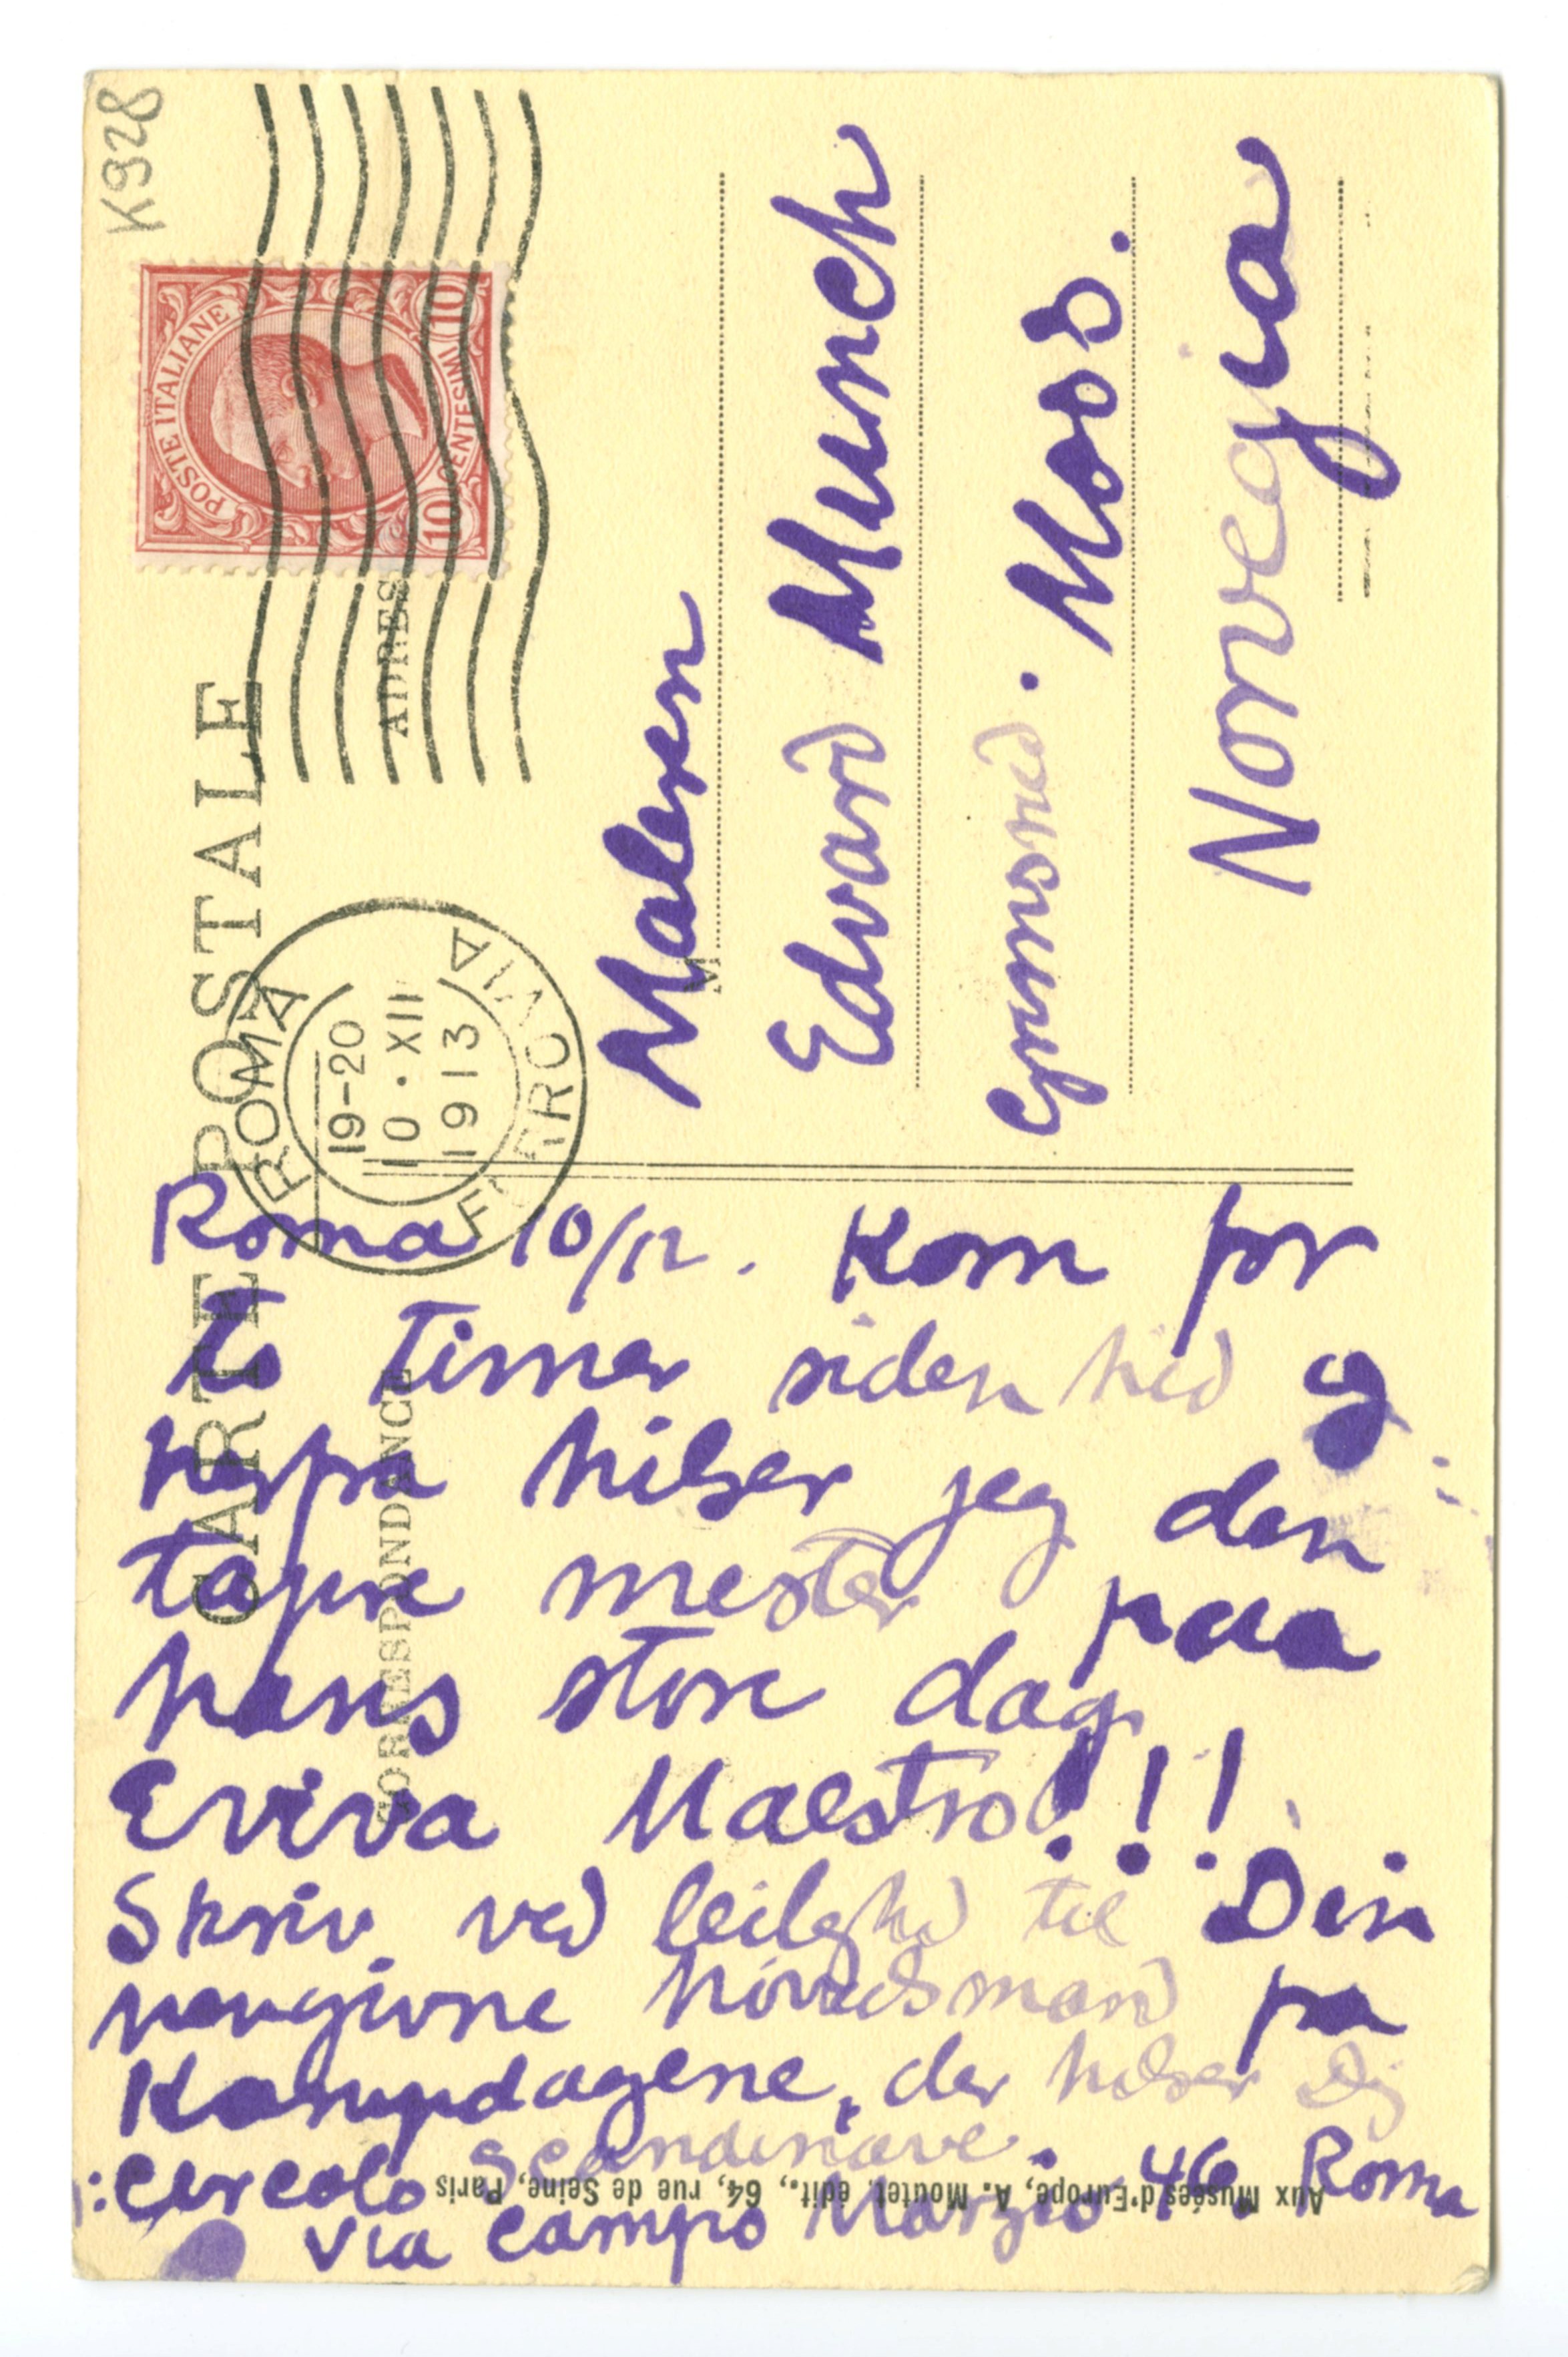 K928
CARTE POSTALE
CORRESPONDANCE
ADRES
POSTE ITALIANE
10 CENTESIMI 10
ROMA
19-20
10·XII
1913
FERROVIA
M
Maleren
Edvard Munch
Grimsrød. Moss.
Norvegia
Roma 10/12. Kom for
to timer siden hid og
herfra hilser jeg den
tapre mester paa
hans store dag.
Eviva Maestro!!!
Skriv ved leilghd til Din
hengivne hövedsmand fra
Kampdagene, der hilser Dig
:Circolo Scandinavo.
via Campo Marzio 46 Roma
Aux Musées d'Europe, A. Moutet. édit., 64, rue de Seine, Paris